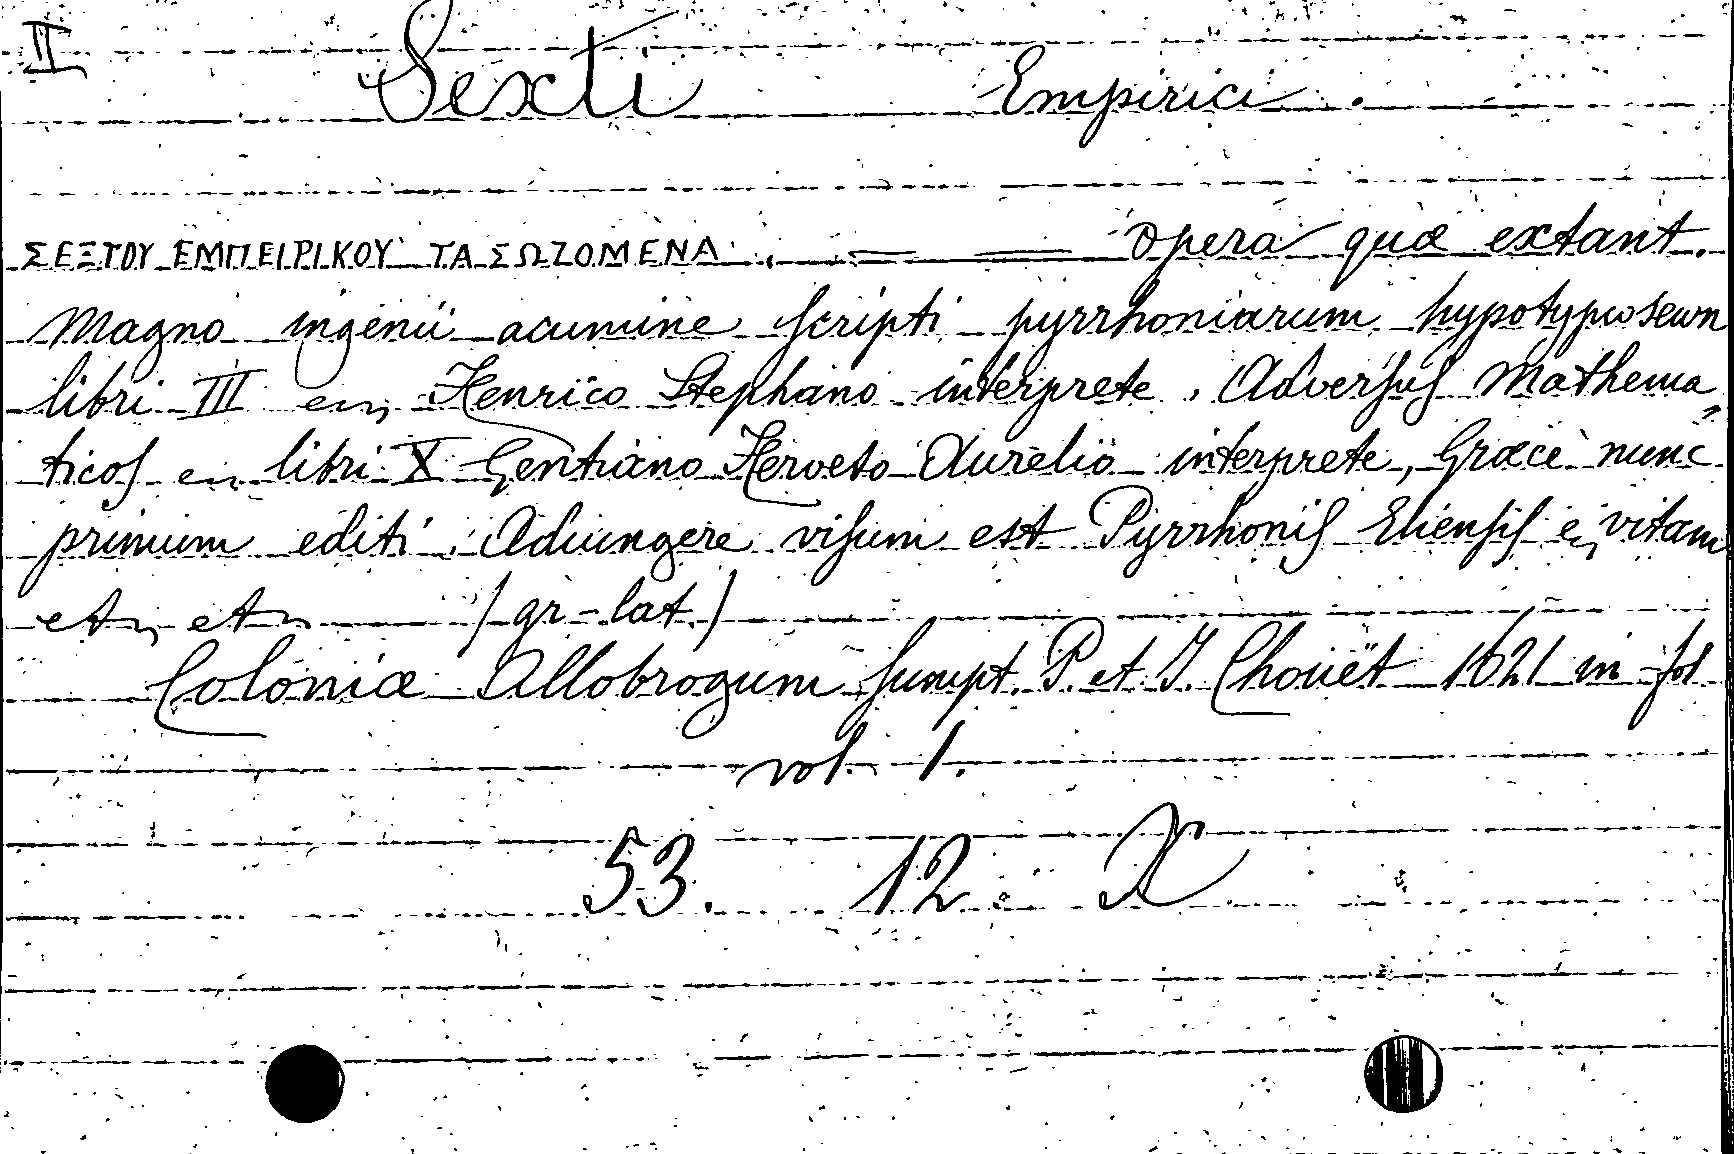 II
Sexti Empirici.
ΣΕΞΤΟΥ ΕΜΠΕΙΡΙΚΟΥ ΤΑ ΣΩΖΟΜΕΝΑ. = = opera quæ extant.
Magno ingenii acumine scripti pyrrhoniarum hypotyposewn
libri III en Henrico Stephano interprete. Adversus Mathema„
ticos en libri X Gentiano Herveto Aurelio interprete, Græcè nunc
primum editi. Adiungere visum est Pyrrhonis Eliensis en vitam
etn etn (gr-lat.)
Coloniæ Allobrogum sumpt. P. et J. Chouët 1621 in-fol
vol. 1.
53. 12. X